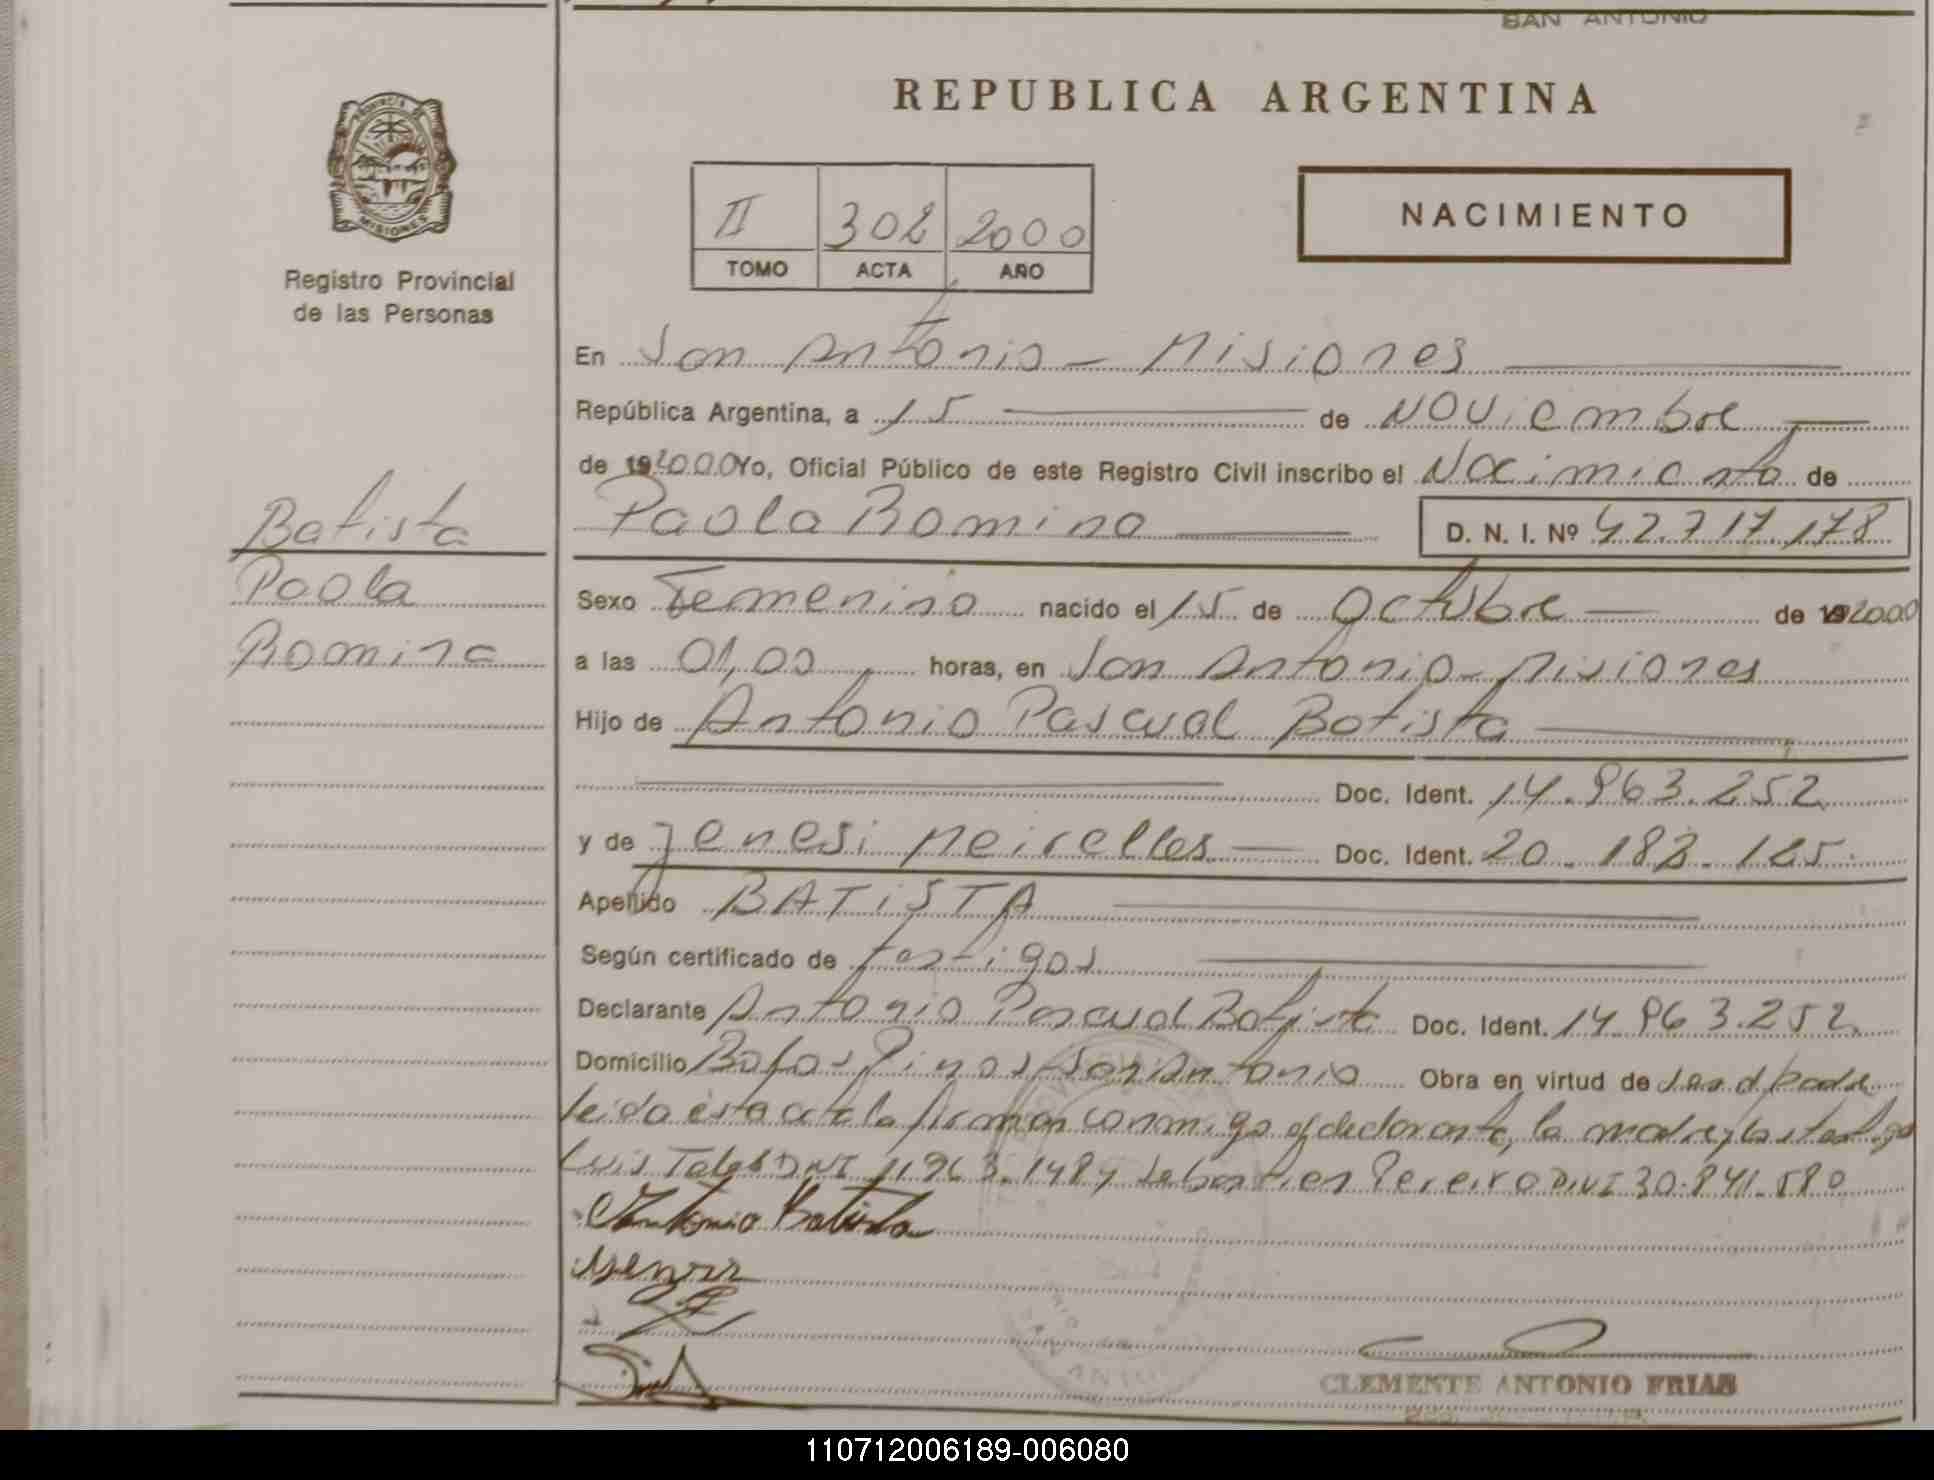 SAN ANTONIO
REPUBLICA ARGENTINA
PROVINCIA DE
MISIONES
Registro Provincial
de las Personas
II 302 2000
TOMO ACTA AÑO
NACIMIENTO
En San Antonio - Misiones
República Argentina, a 15 de Noviembre
de 192000 Yo, Oficial Público de este Registro Civil inscribo el Nacimiento de
Paola Romina D. N. I. Nº 42.717.178
Batista
Paola
Romina
Sexo Femenino nacido el 15 de Octubre de 192000
a las 01,00 horas, en San Antonio - Misiones
Hijo de Antonio Pascual Batista
Doc. Ident. 14.963.252
y de Jenesi Meirelles Doc. Ident. 20.183.125.
Apellido BATiSTA
Según certificado de testigos
Declarante Antonio Pascual Batista Doc. Ident. 14.963.252
Domicilio Pinos San Antonio Obra en virtud de padre
leida esta acta la firman conmigo el declarante, la madre y los testigos
Luis DNI 11.963.148 y Sebastien Pereira DNI 30.841.580
Antonio Batista
CLEMENTE ANTONIO FRIAS
110712006189-006080